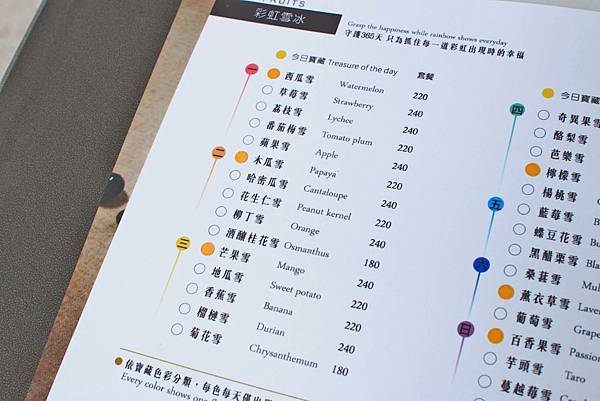 FRUITS
彩虹雪冰
Grasp the happiness while rainbow shows everyday
守護365天 只為抓住每一道彩虹出現時的幸福
今日寶藏 Treasure of the day 套餐
一 西瓜雪 Watermelon 220
草莓雪 Strawberry 240
荔枝雪 Lychee 240
番茄梅雪 Tomato plum 220
蘋果雪 Apple 240
二 木瓜雪 Papaya 220
哈密瓜雪 Cantaloupe 220
花生仁雪 Peanut kernel 220
柳丁雪 Orange 240
酒釀桂花雪 Osmanthus 180
三 芒果雪 Mango 240
地瓜雪 Sweet potato 220
香蕉雪 Banana 220
榴槤雪 Durian 340
菊花雪 Chrysanthemum 180
依寶藏色彩分類，每色每天僅出
Every color shows one
今日寶藏
四 奇異果雪
酪梨雪
芭樂雪
檸檬雪
楊桃雪
五 藍莓雪
蝶豆花雪
黑醋栗雪
桑葚雪
六 薰衣草雪
葡萄雪
日 百香果雪 Passion
芋頭雪 Taro
蔓越莓雪